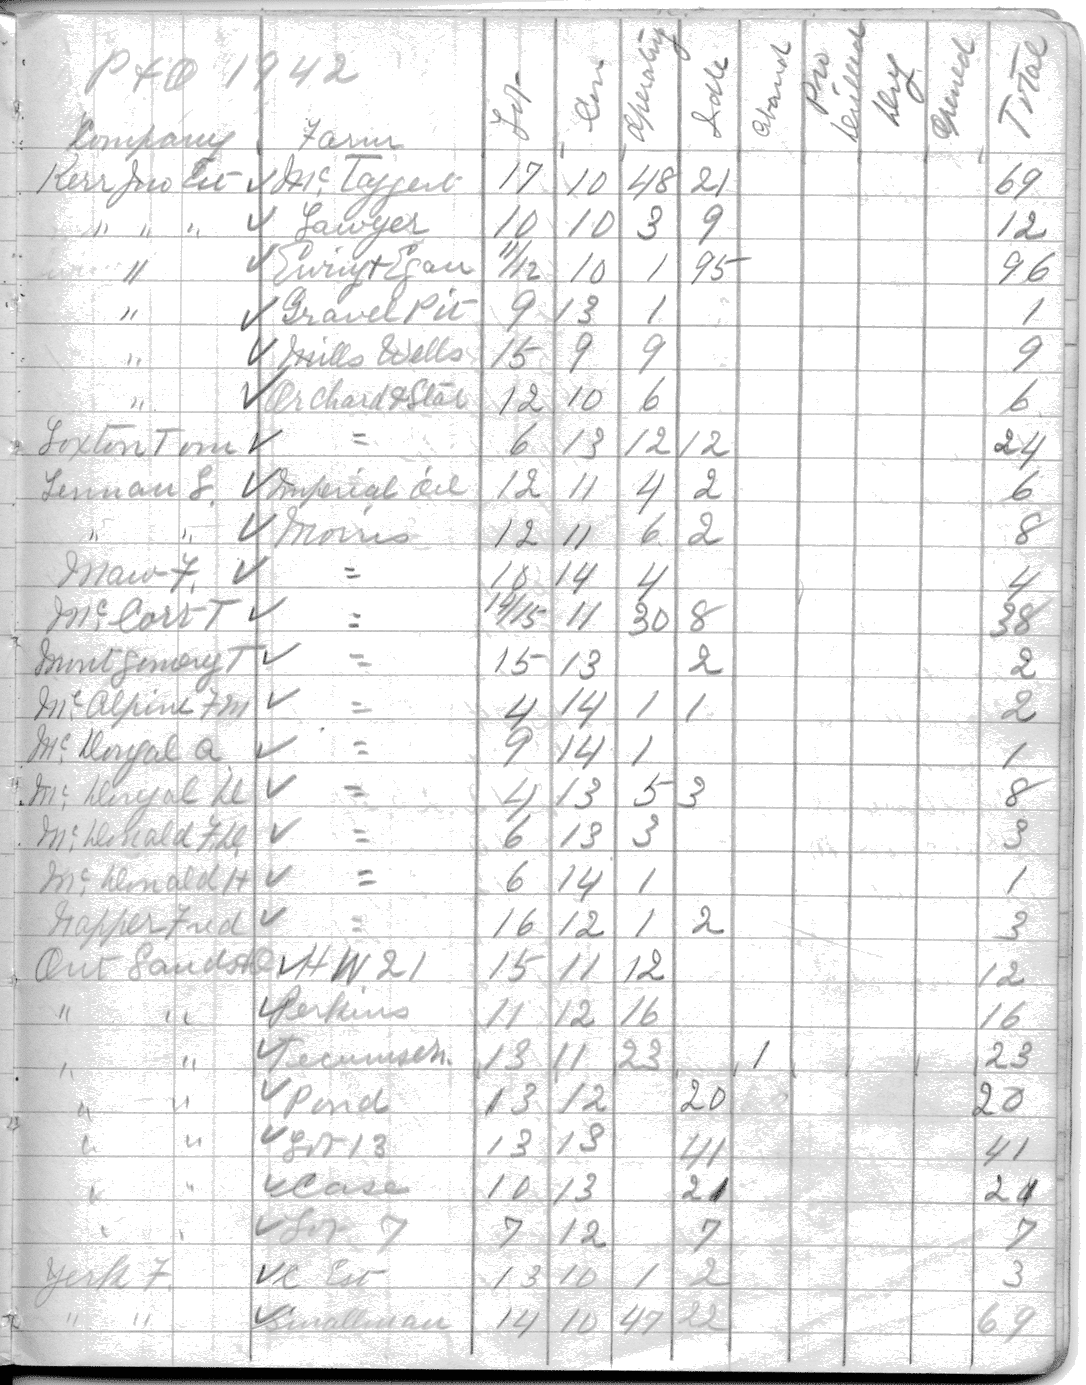 P & O 1942
Company Farm Lot Con Operating Idle Aband Pro Drilled Dry Opened Total
Kerr Jno Est ✓ Mc Taggert 17 10 48 21 69
" " " ✓ Sawyer 10 10 3 9 12
" ✓ Ewing + Egan 11/12 10 1 95 96
" ✓ Gravel Pit 9 13 1 1
" ✓ Mills Wells 15 9 9 9
" ✓ Orchard & Stat 12 10 6 6
Loxton Tom ✓ = 6 13 12 12 24
Lennan S. ✓ Imperial Oil 12 11 4 2 6
" " ✓ Morris 12 11 6 2 8
Maw F. ✓ = 10 14 4 4
Mc Cort T ✓ = 14/15 11 30 8 38
Montgomery T ✓ = 15 13 2 2
Mc Alpine F M ✓ = 4 14 1 1 2
Mc Dougal A ✓ = 9 14 1 1
Mc Dougal D ✓ = 4 13 5 3 8
Mc Donald F.D. ✓ = 6 13 3 3
Mc Donald H ✓ = 6 14 1 1
Napper Fred ✓ = 16 12 1 2 3
Ont Sands ✓ H W 21 15 11 12 12
" " ✓ Perkins 11 12 16 16
" " ✓ Tecumseh. 13 11 23 1 23
" " ✓ Pond 13 12 20 20
" " ✓ Lot 13 13 13 41 41
" " ✓ Case 10 13 21 21
" " ✓ Lot 7 7 12 7 7
Yerk F. ✓ C Est 13 10 1 2 3
" " ✓ Smallman 14 10 47 22 69